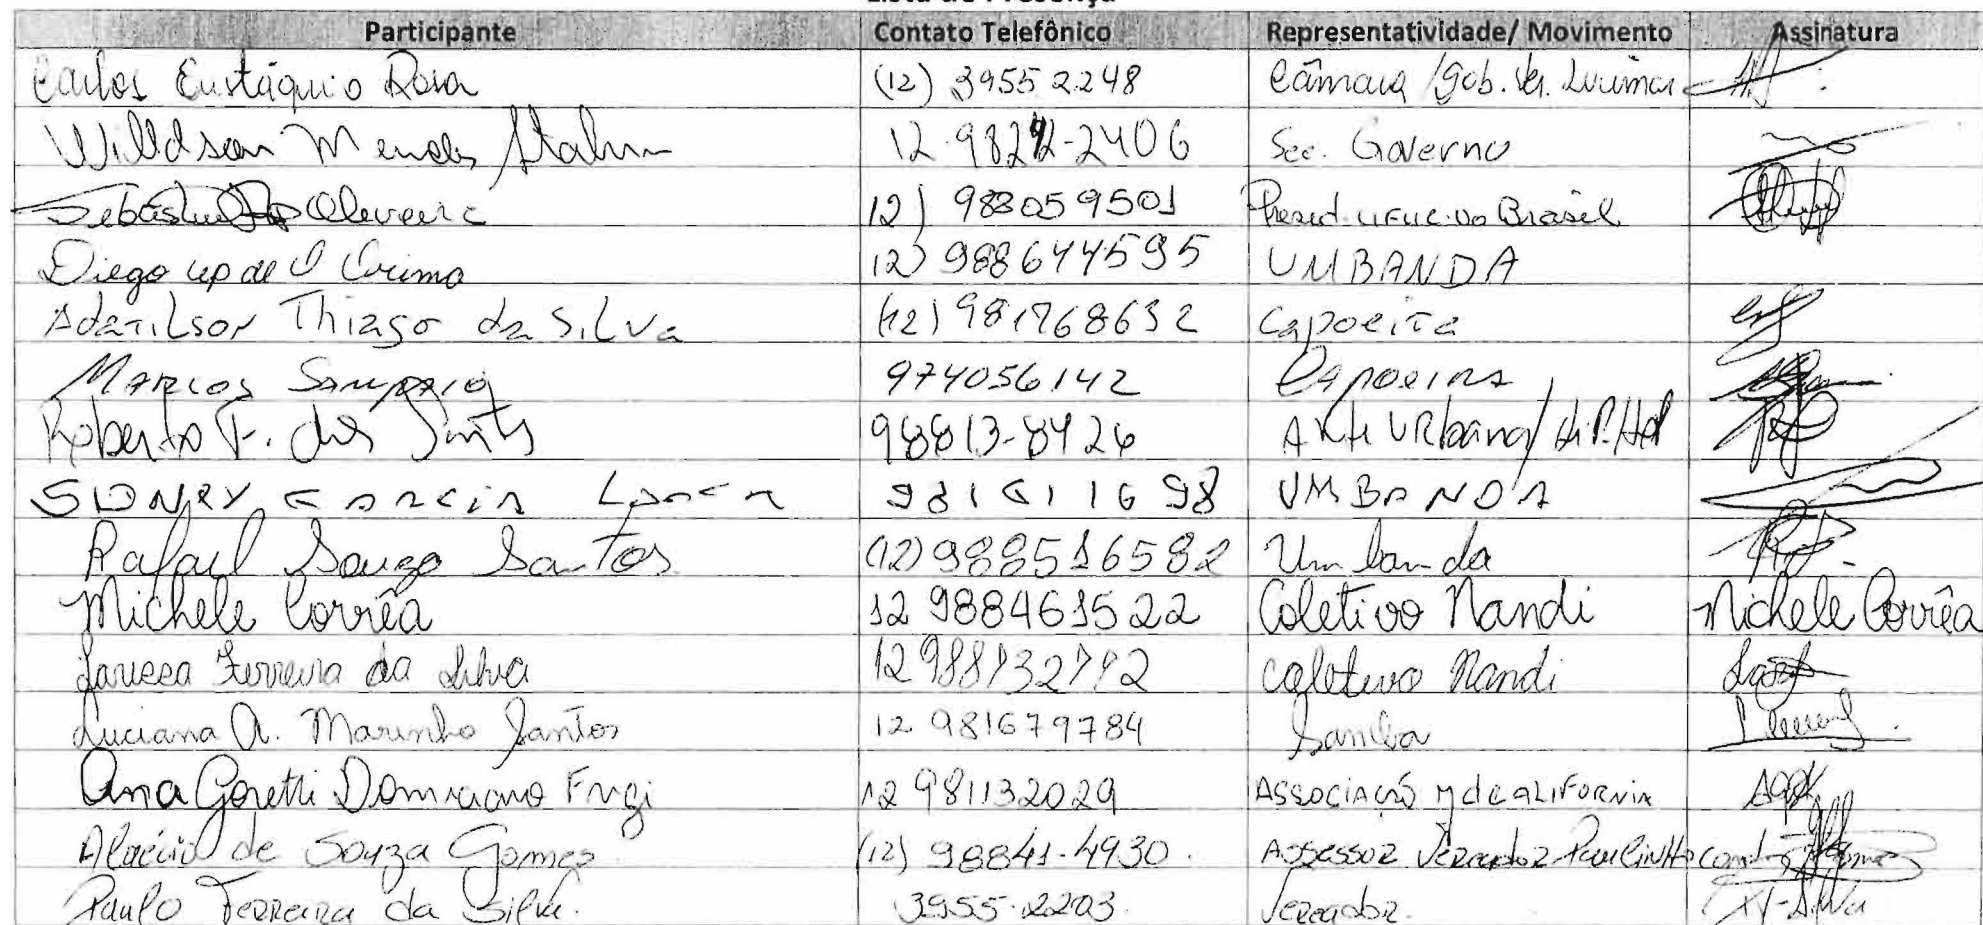 Lista de Presença
Participante Contato Telefônico Representatividade/ Movimento Assinatura
Carlos Eustáquio Rosa (12) 3955 2248 Câmara /Gab. Ver.
Willdson Mendes 12 2406 Sec. Governo
Oliveira 12) 983059501 do Brasil
Diego de 12) 988644595 UMBANDA
Adatilson Thiago da Silva (12) 981768632 Capoeira
Marcos Sampaio 974056142 Capoeira
Roberto F. dos Santos 98813-8426 Arte Urbana/ Hip.Hop
SIDNEY GARCIA 981611698 UMBANDA
Rafael Souza Santos (12) 988516582 Umbanda
Michele Corrêa 12 988461522 Coletivo Nandi Michele Corrêa
Larissa Ferreira da Silva 12 988132792 Coletivo Nandi
Luciana A. Marinho Santos 12 981679784 Samba
Ana Goretti Domiciano Frigi 12 981132029 Associação CALIFORNIA
de Souza Gomes (12) 98841-4930. Assessor Vereador Paulinho
Paulo Ferreira da Silva. 3955-2203. Vereador.